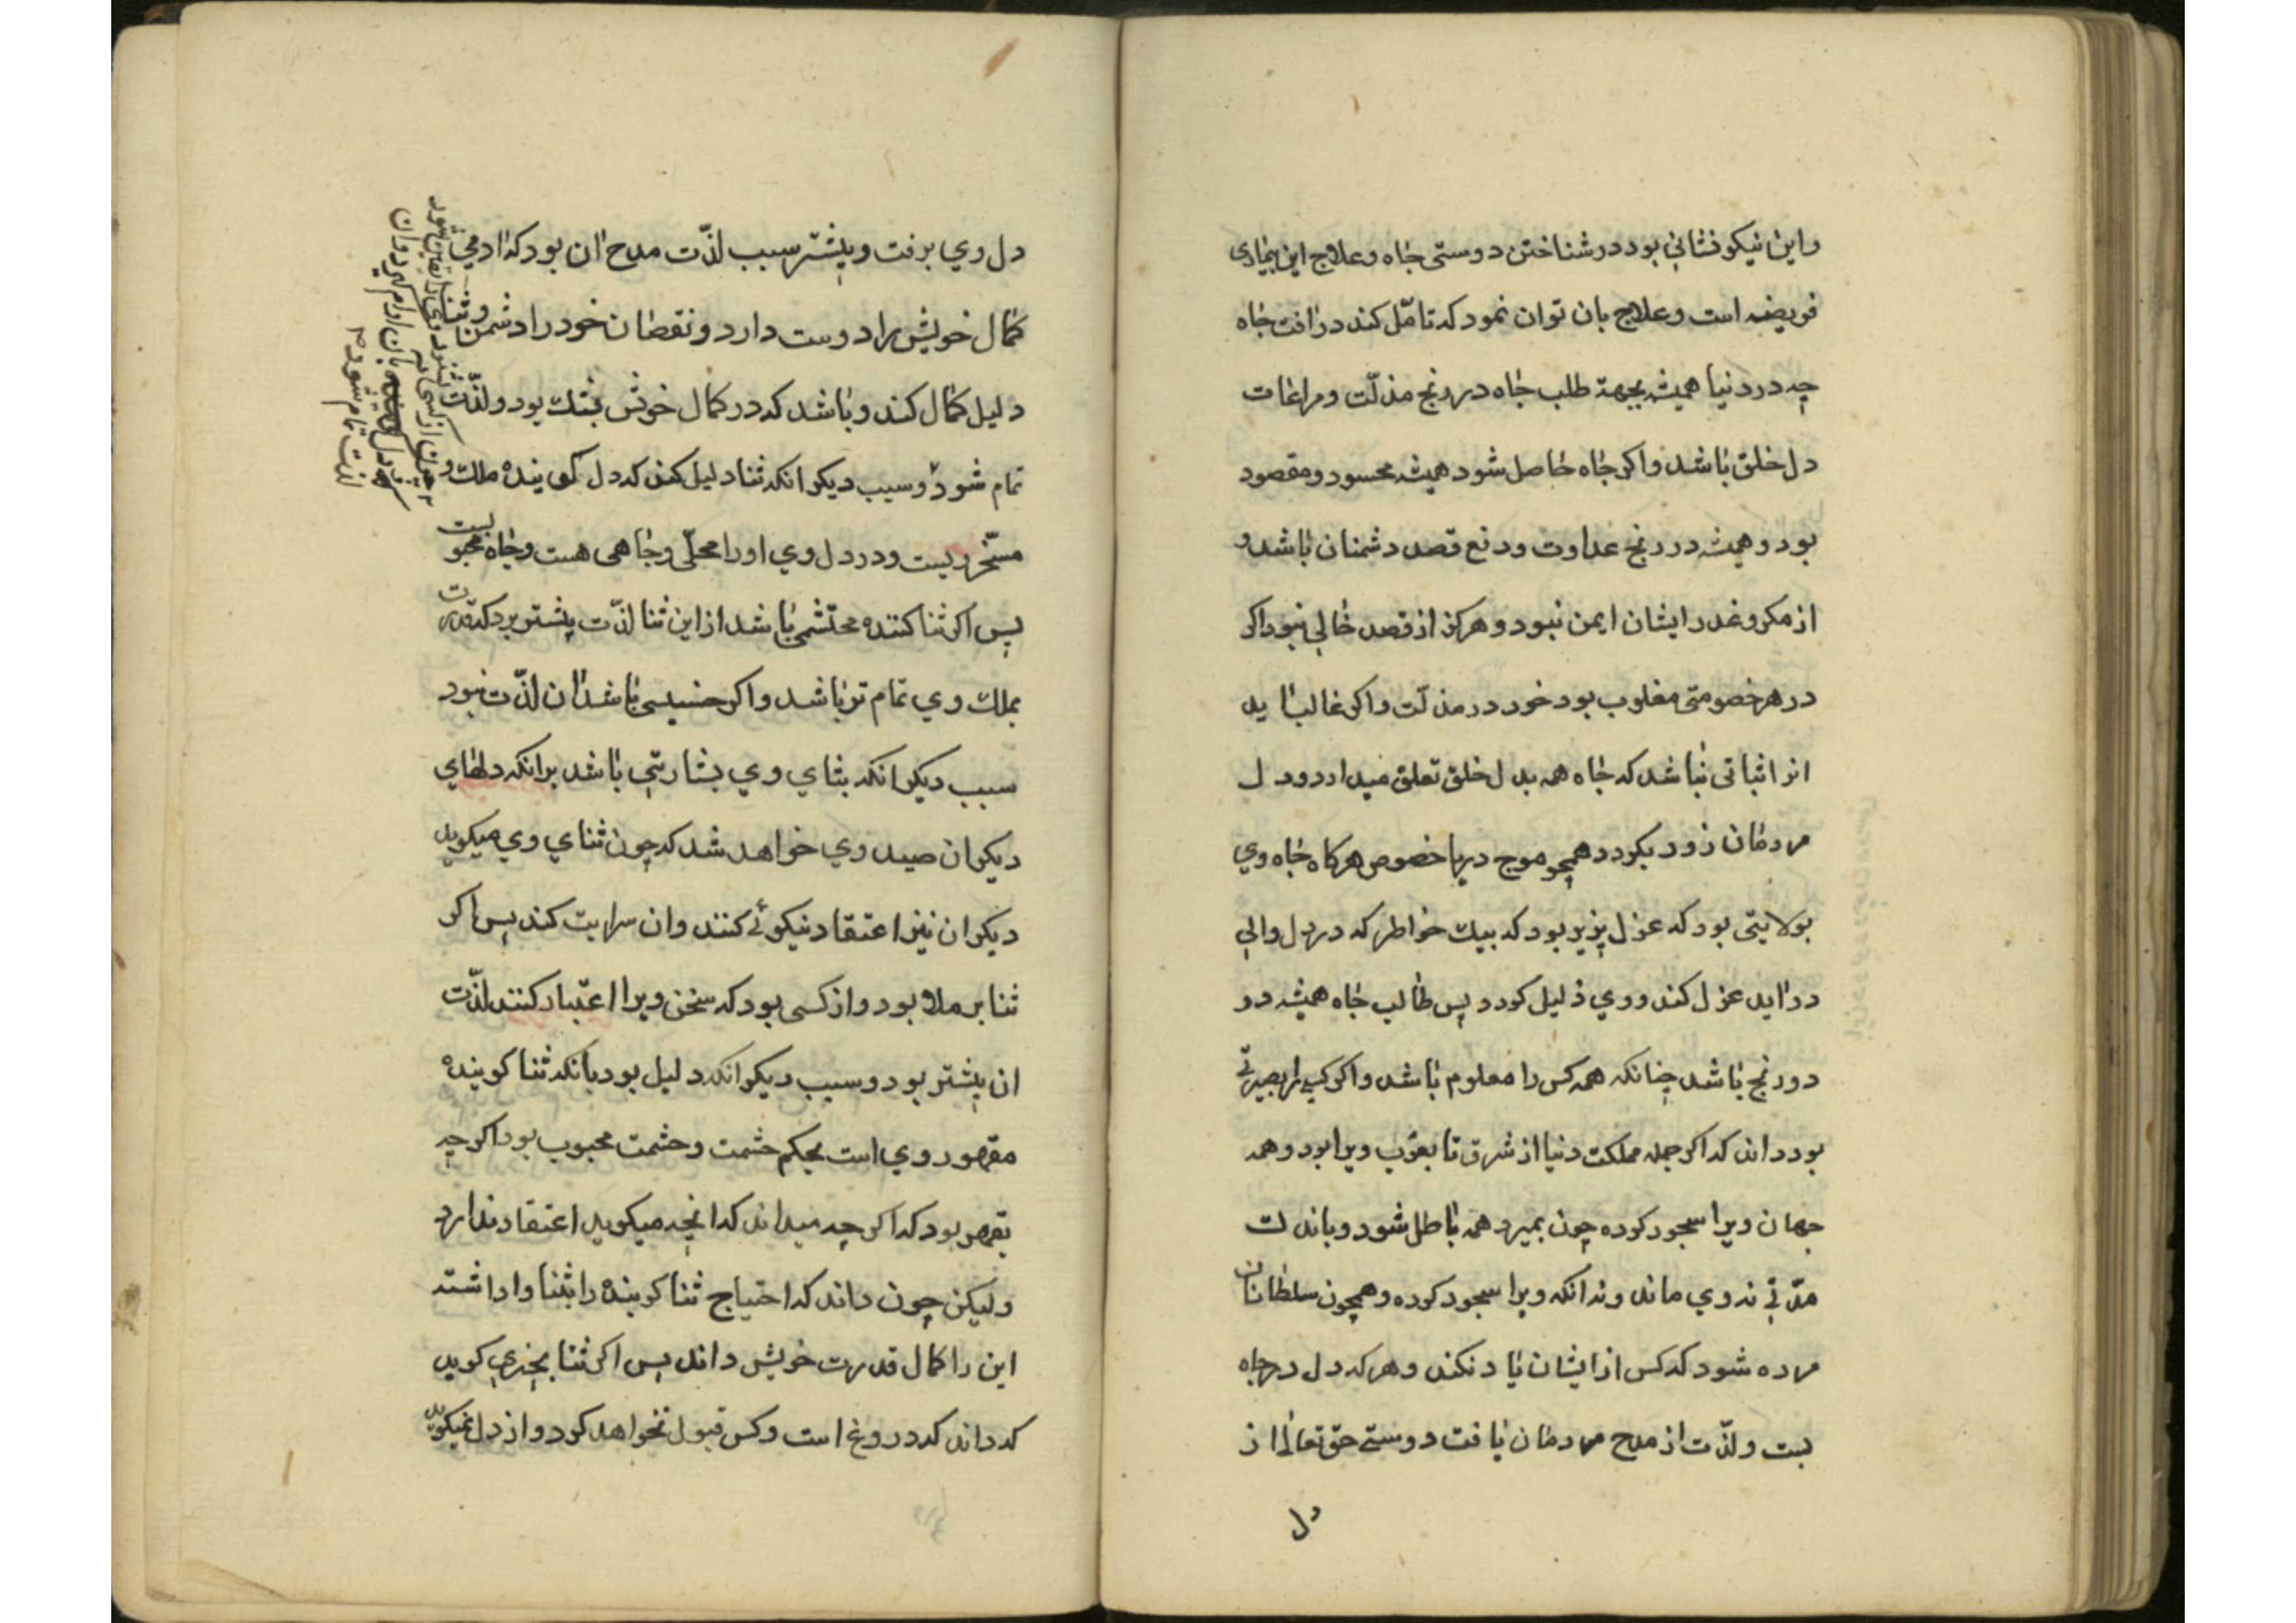 واین نیکو نشانی بود در شناختن دوستی جاه وعلاج این بیماری
فریضه است وعلاج بان توان نمود که تامّل کند در افت جاه
چه در دنیا همیشه بجهة طلب جاه در رنج مذلّت ومراعات
دل خلق باشد واکر جاه حاصل شود همیشه محسود ومقصود
بود وهمیشه در رنج عداوت ودفع قصد دشمنان باشد و
از مکر وغدر ایشان ایمن نبود وهرکز از قصد خالی نبود اکر
در هر خصومتی مغلوب بود خود در مذلّت واکر غالب اید
انرا ثباتی نباشد که جاه همه بدل خلق تعلق میدارد ودل
مردمان زود بکردد همچو موج دریا خصوص هرکاه جاه وی
بولایتی بود که عزل پزیر بود که بیك خواطر که در دل والی
در اید عزل کند ووی ذلیل کردد پس طالب جاه همیشه در
در رنج باشد چنانکه همه کس را معلوم باشد واکر کسیرا بصیرتی
بود داند که اکر جمله مملکت دنیا از شرق تا بغرب ویرا بود وهمه
جهان ویرا سجود کرده چون بمیرد همه باطل شود وباندك
مدّتی نه وی ماند ونه انکه ویرا سجود کرده وهمچون سلطانان
مرده شود که کس از ایشان یاد نکند وهر که دل در جاه
بست ولذّت از مدح مردمان یافت دوستی حق تعالی از
دل
دل وی برفت وبیشتر سبب لذّت مدح ان بود که ادمی
کمال خویش را دوست دارد ونقصان خود را دشمن وثنا
دلیل کمال کند وباشد که در کمال خویش بشك بود ولذّت
تمام شود وسبب دیکر انکه ثنا دلیل کند که دل کوینده ملك و
مسخّر ویست ودر دل وی اورا محلّی وجاهی هست وجاه محبوبست
پس اکر ثنا کننده محتشمی باشد از این ثنا لذّت بیشتر برد که قدرت
بملك وی تمام تر باشد واکر خسیسی باشد ان لذّت نبود
سبب دیکر انکه بثنای وی بشارتی باشد برانکه دلهای
دیکران صید وی خواهد شد که چون ثنای وی میکوید
دیکران نیز اعتقاد نیکوئی کنند وان سرایت کند پس اکر
ثنا بر ملا بود واز کسی بود که سخن ویرا اعتبار کنند لذّت
ان بیشتر بود وسبب دیکر انکه دلیل بود بانکه ثنا کوینده
مقهور وی است بحکم حشمت وحشمت محبوب بود اکر چه
بقهر بود که اکر چه میداند که انچه میکوید اعتقاد ندارد
ولیکن چون داند که احتیاج ثنا کوینده را بثنا واداشته
این را کمال قدرت خویش داند پس اکر ثنا بچیزی کوید
که داند که دروغ است وکس قبول نخواهد کرد واز دل نمیکوید
چون از کسی بشنود وی را یقین شود
بان ارام کیرد وان
لذت تمام شود